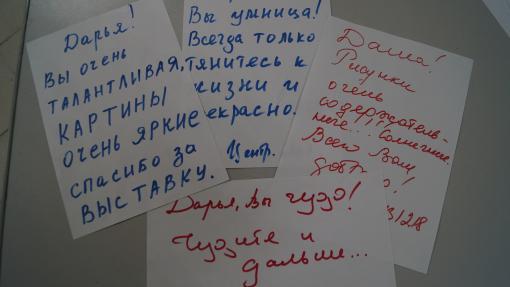 Дарья!
Вы очень
талантливая,
картины
очень яркие
спасибо за
выставку.
Вы умница!
Всегда только
тянитесь к
жизни и
Центр.
Даша!
Рисунки
очень
содержатель-
ные... Солнечные.
Всего Вам
Дарья, Вы чудо!
Чудите и
дальше...